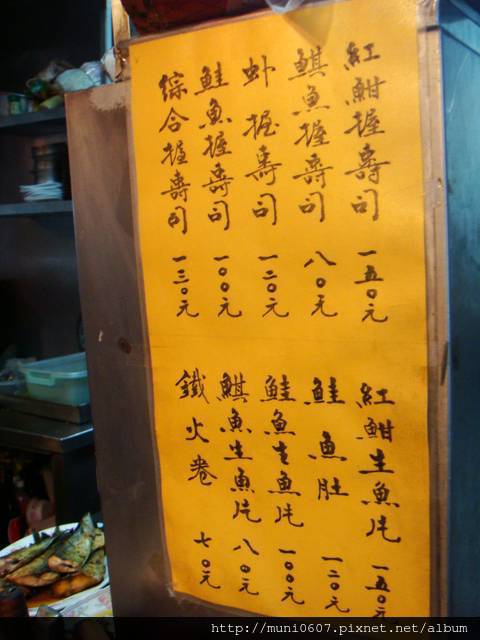 紅魽握壽司 一五０元
鯕魚握壽司 八０元
虾握壽司 一二０元
鮭魚握壽司 一００元
綜合握壽司 一三０元
紅魽生魚片 一五０元
鮭魚肚 一二０元
鮭魚生魚片 一００元
鯕魚生魚片 八０元
鐵火卷 七０元
http://muni0607.pixnet.net/album